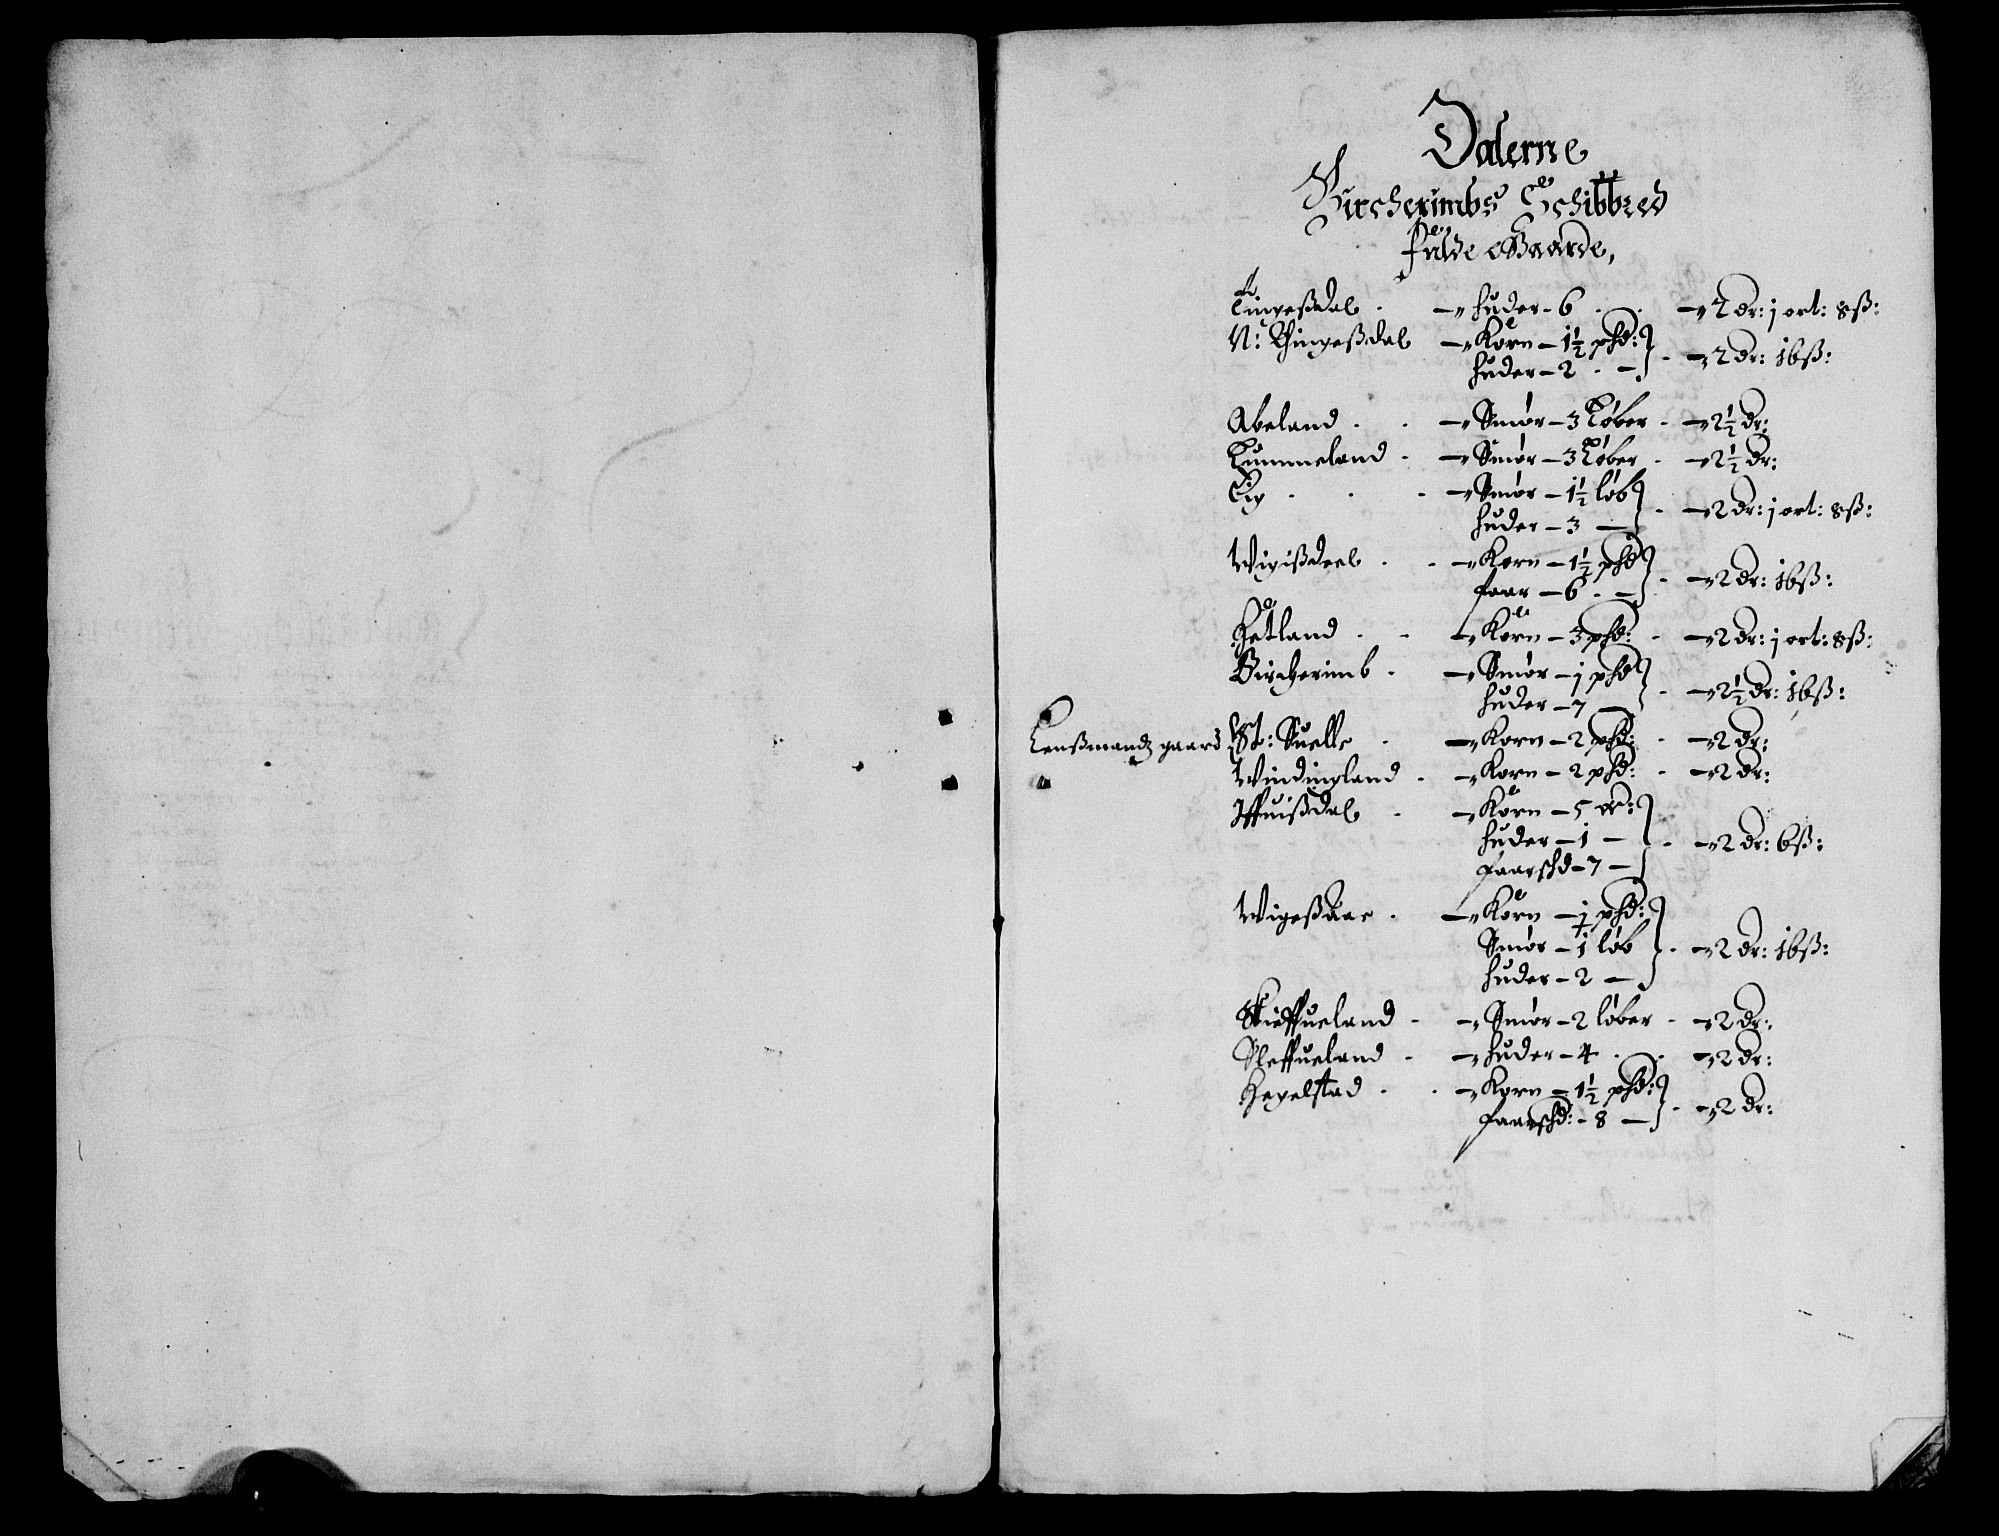 Dalerne
Bircherimbs Schibbred
fulde Gaarde,
Tingeßdal - — huder - 6 - — 2 dr: j ort: 8 ß:
N: Thingeßdal — Korn — 1½ phd:
huder — 2 - — - — 2 dr: 16 ß:
Abeland - - — Smør — 3 Løber - — 2½ dr:
Lummeland - — Smør — 3 Løber - — 2½ dr:
Eig - - - — Smør — 1½ løb
huder — 3 — - — 2 dr: j ort: 8 ß:
Wigißdeel - - — Korn — 1½ phd
faar — 6 - — - — 2 dr: 16 ß:
Hetland - - — Korn — 3 phd: - — 2 dr: j ort: 8 ß:
Bircherimb - — Smør — j phd
huder — 7 — - — 2½ dr: 16 ß:
Lenßmandz gaard St: Suelle - — Korn — 2 phd: - — 2 dr:
Windingland - — Korn — 2 phd: - — 2 dr:
Iffuißdal - — Korn — 5 :
huder — 1 —
faarschd — 7 — - — 2 dr: 6 ß:
Wigeßaae - — Korn — j phd:
Smør — 1 løb
huder — 2 — - — 2 dr: 16 ß:
Skieffueland - — Smør — 2 løber - — 2 dr:
Sleffueland - — huder — 4 - - — 2 dr:
Hegelstad - - — Korn — 1½ phd:
faarschd: - 8 — - — 2 dr: